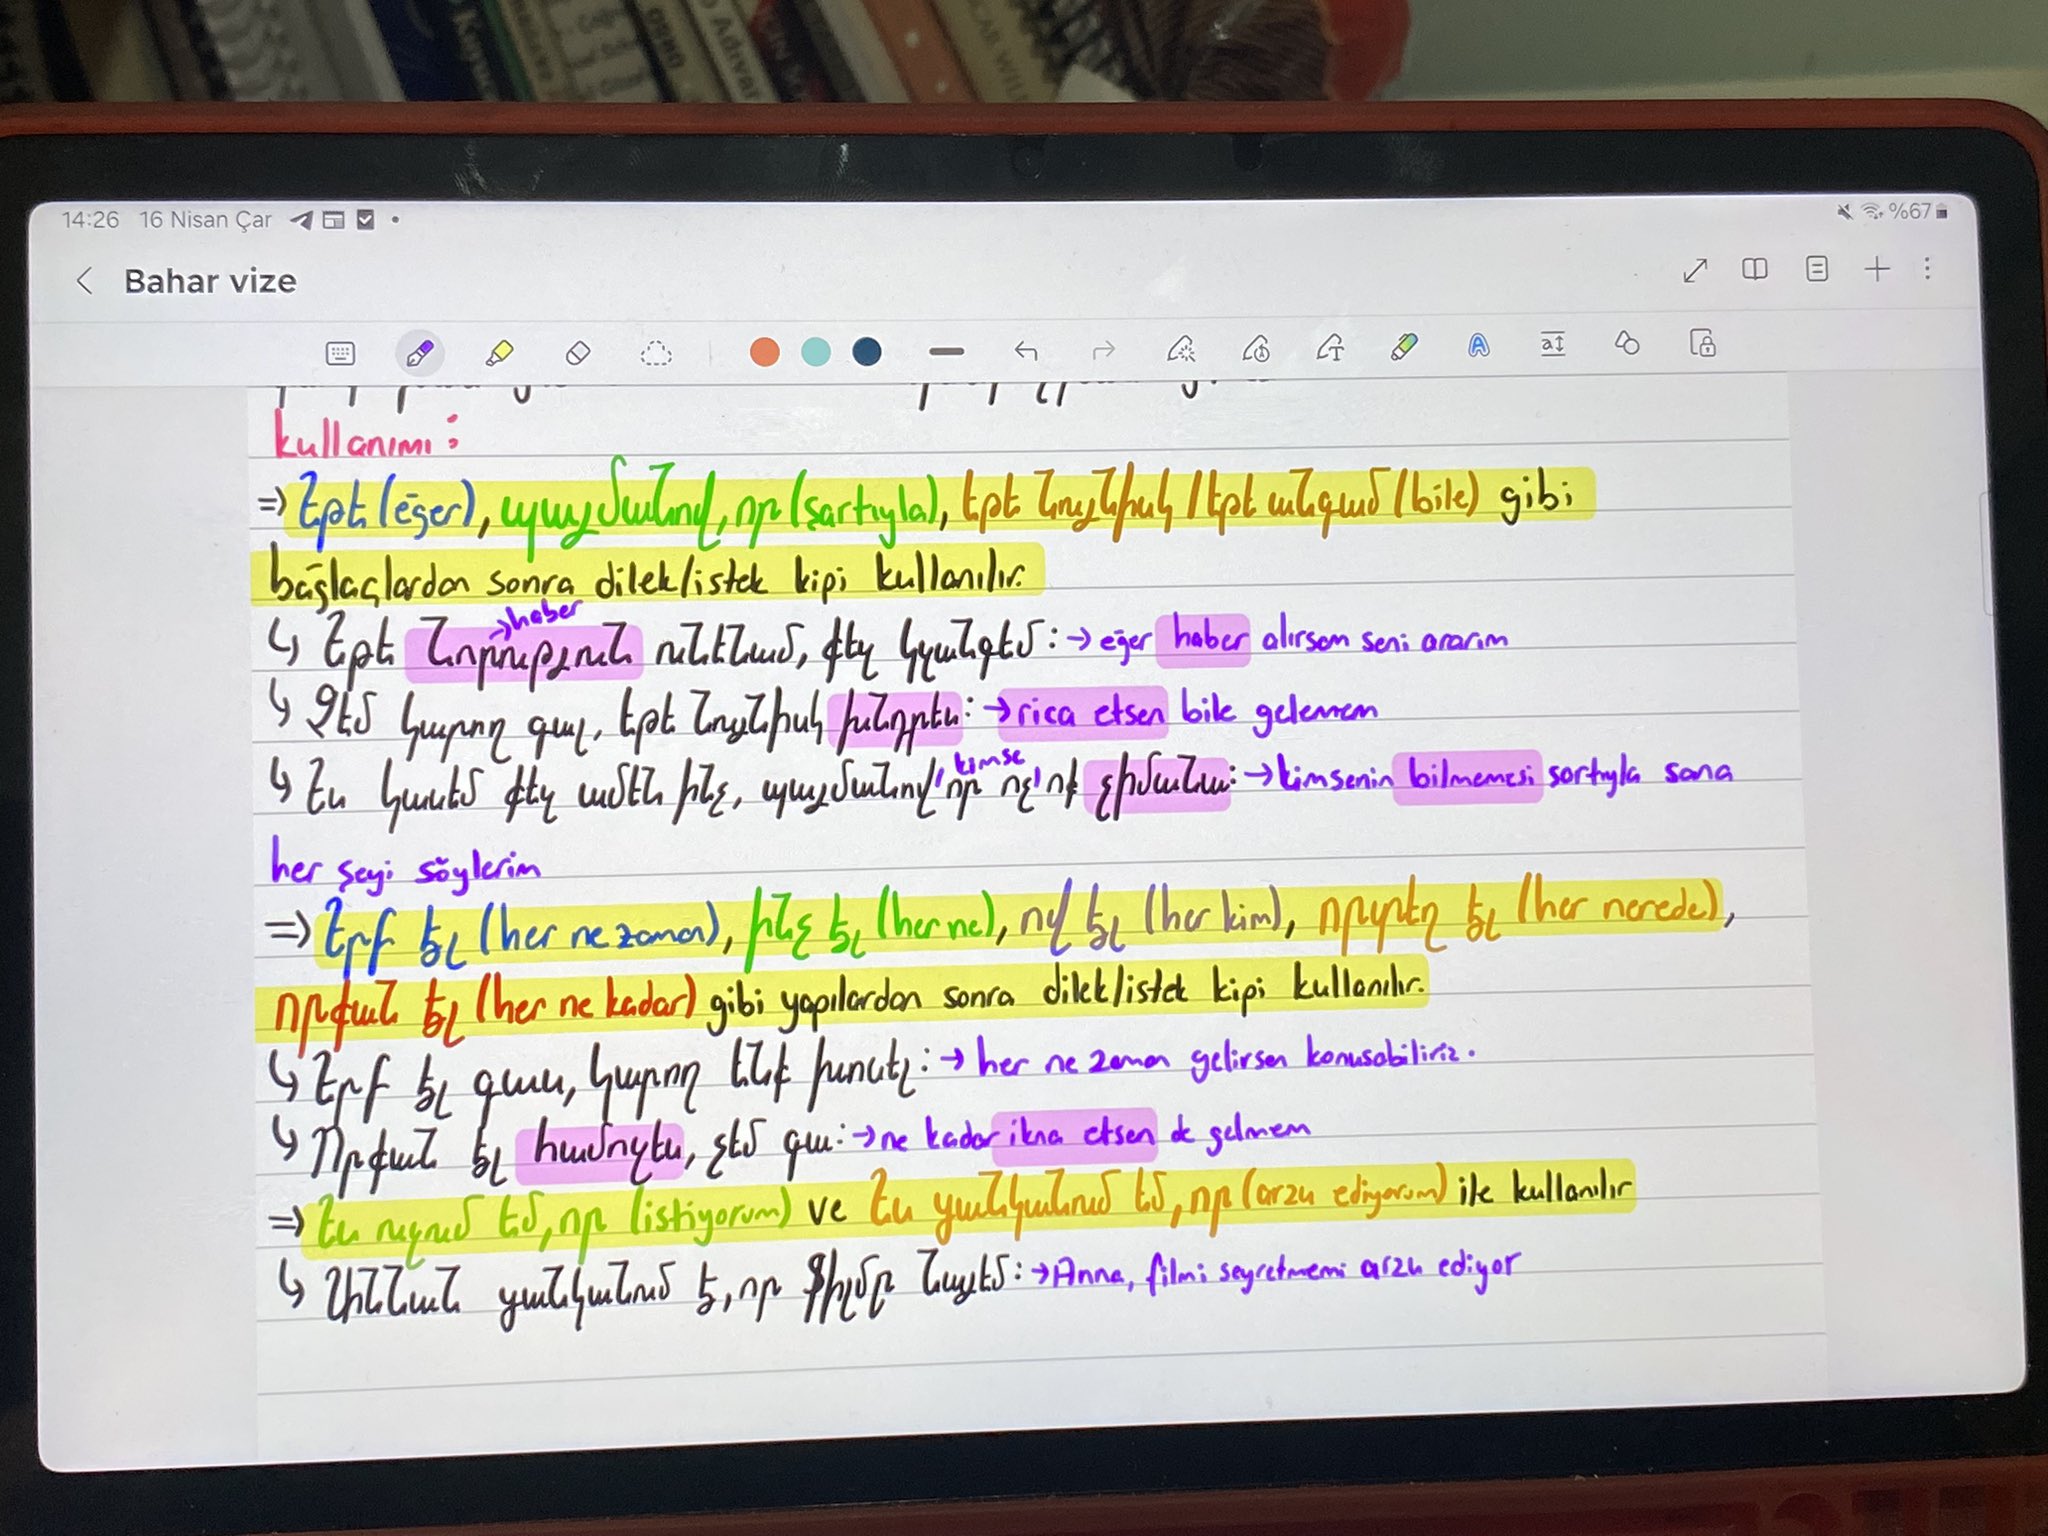 Kegue
OSBO
Adıvar
OSCAR WILD
14:26 16 Nisan Çar %67
Bahar vize
kullanımı:
⇒ Եթե (eğer), պայմանով, որ (şartıyla), եթե նույնիսկ / եթե անգամ (bile) gibi
bağlaçlardan sonra dilek/istek kipi kullanılır.
→haber
↳ Եթե նորություն ունենամ, քեզ կզանգեմ: → eğer haber alırsam seni ararım
↳ Չեմ կարող գալ, եթե նույնիսկ խնդրես: → rica etsen bile gelemem
kimse
↳ Ես կասեմ քեզ ամեն ինչ, պայմանով որ ոչ ոք չիմանա: → kimsenin bilmemesi sartıyla sana
her şeyi söylerim
⇒ Երբ էլ (her ne zaman), ինչ էլ (her ne), ով էլ (her kim), որտեղ էլ (her nerede),
որքան էլ (her ne kadar) gibi yapılardan sonra dilek/istek kipi kullanılır.
↳ Երբ էլ գաս, կարող ենք խոսել: → her ne zaman gelirsen konusabiliriz.
↳ Որքան էլ համոզես, չեմ գա: → ne kadar ikna etsen de gelmem
⇒ Ես ուզում եմ, որ (istiyorum) ve Ես ցանկանում եմ, որ (arzu ediyorum) ile kullanılır
↳ Աննան ցանկանում է, որ ֆիլմը նայեմ: → Anna, filmi seyretmemi arzu ediyor